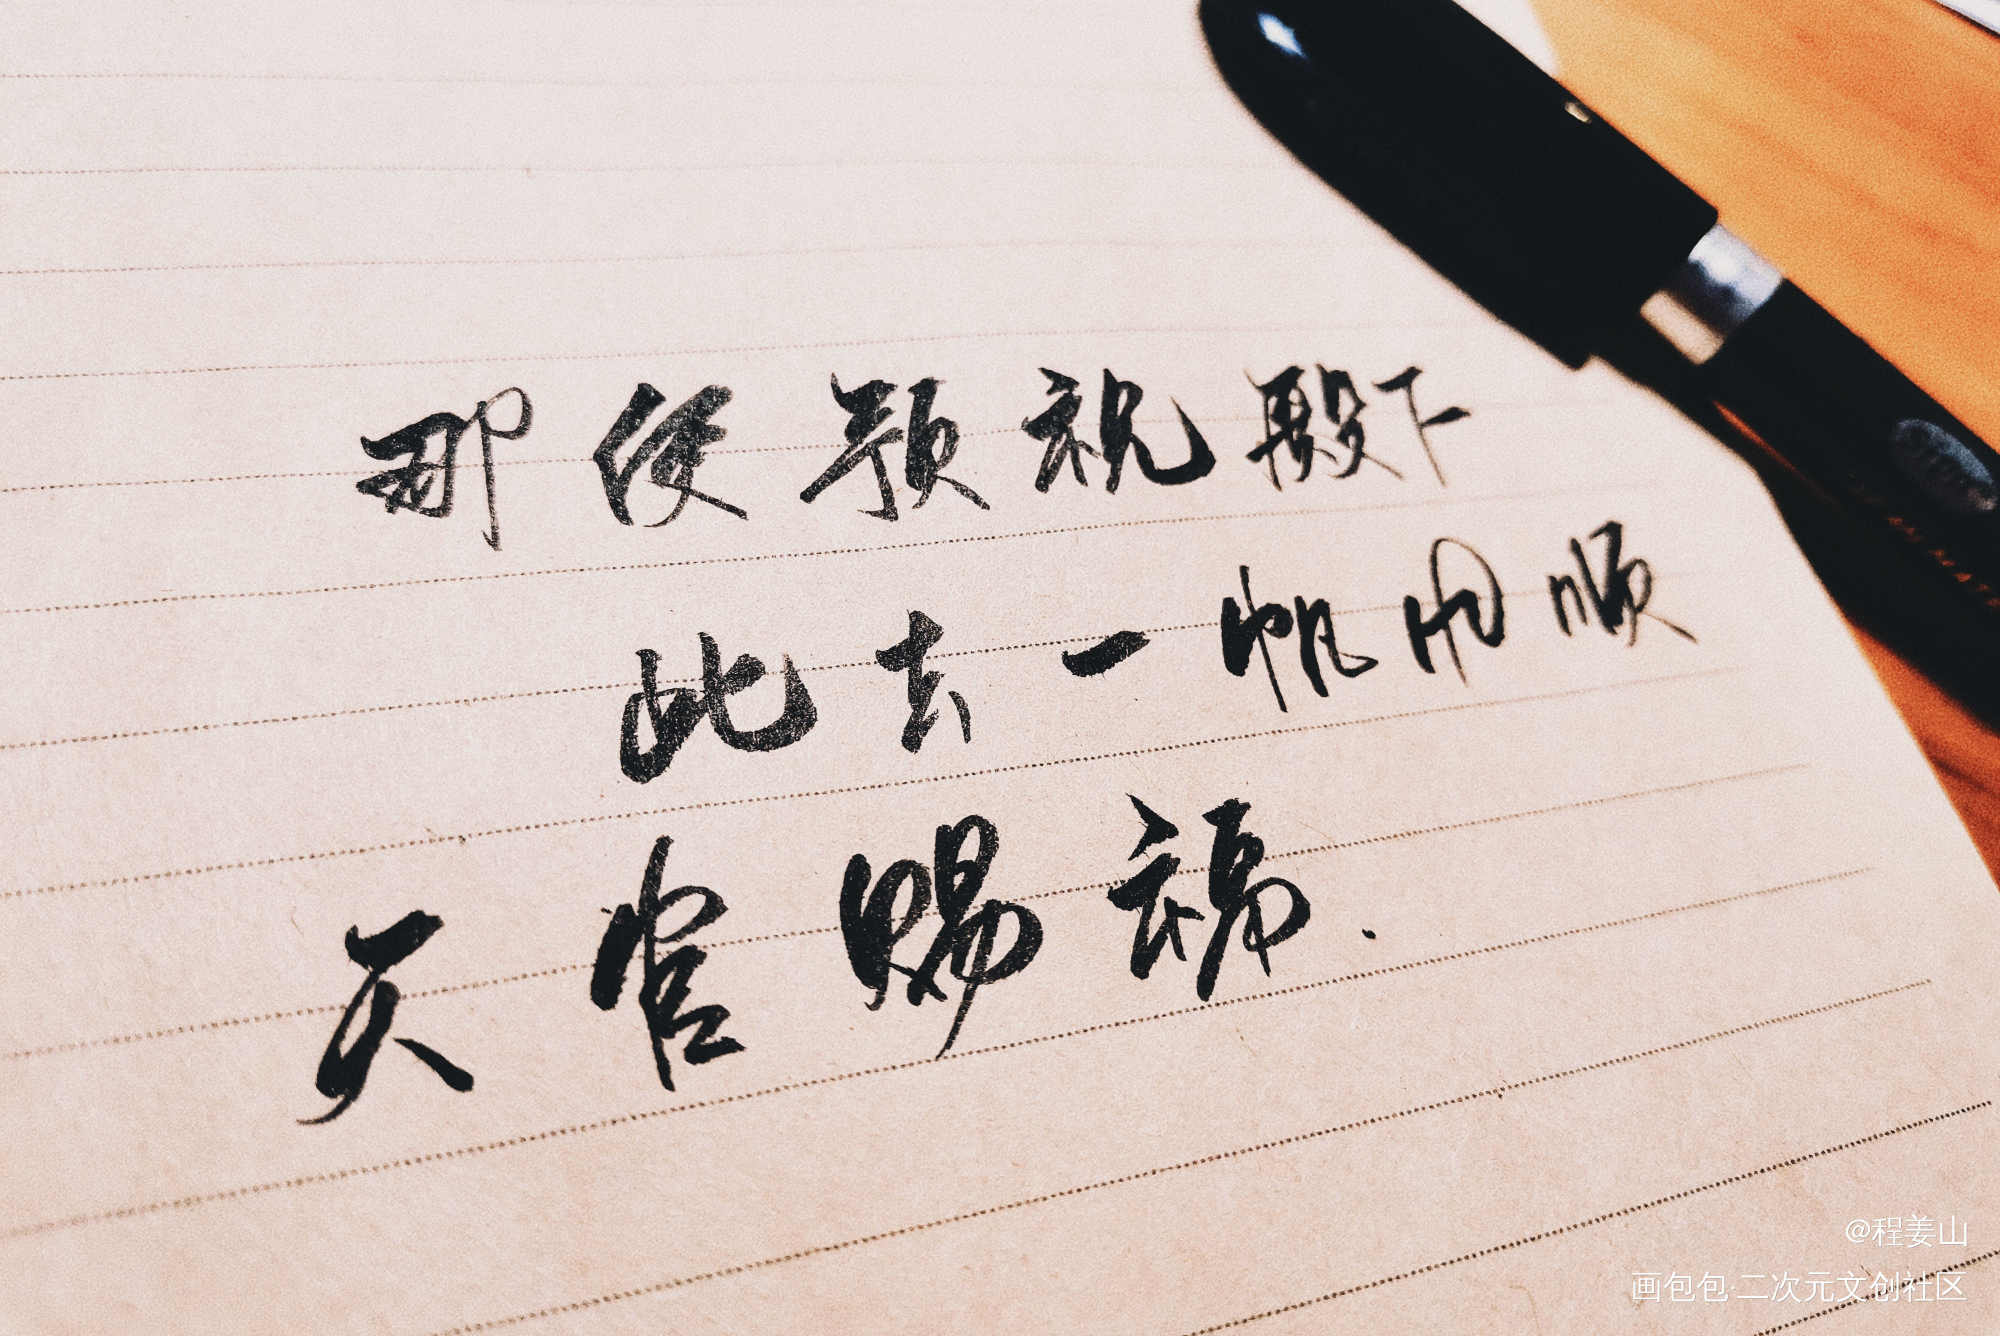 那便预祝殿下
此去一帆风顺
天官赐福.
@程姜山
画包包·二次元文创社区